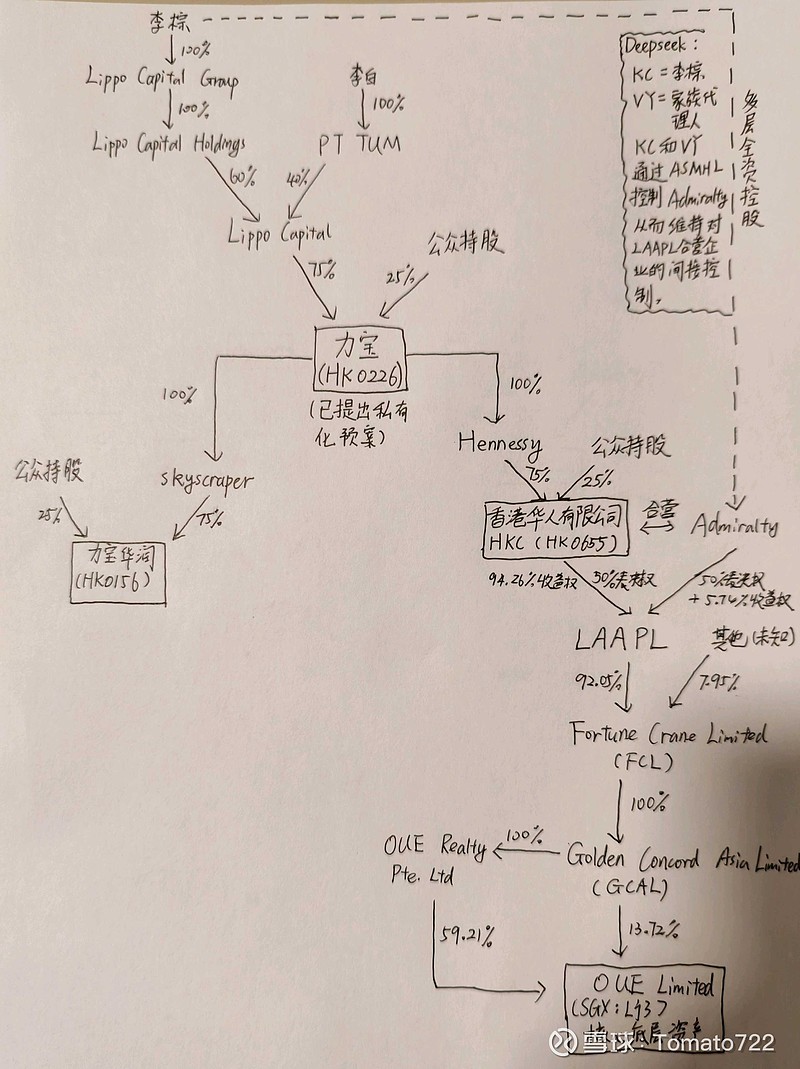 李棕
100%
Lippo Capital Group
100%
Lippo Capital Holdings
60%
李白
100%
PT TUM
40%
Lippo Capital
75%
公众持股
25%
力宝
(HK0226)
(已提出私有
化预案)
100%
skyscraper
75%
公众持股
25%
力宝华润
(HK0156)
100%
Hennessy
75%
公众持股
25%
香港华人有限公司
HKC (HK0655)
合营
Admiralty
多层全资控股
Deepseek:
KC=李棕
VY=家族代
理人
KC和VY
通过ASMHL
控制Admiralty
从而维持对
LAAPL合营企
业的间接控
制。
94.26%收益权
50%表决权
50%表决权
+5.74%收益权
LAAPL
其他(未知)
92.05%
7.95%
Fortune Crane Limited
(FCL)
100%
Golden Concord Asia Limited
(GCAL)
100%
OUE Realty
Pte. Ltd
59.21%
13.72%
OUE Limited
(SGX: LJ3)
底层资产
雪球:Tomato722